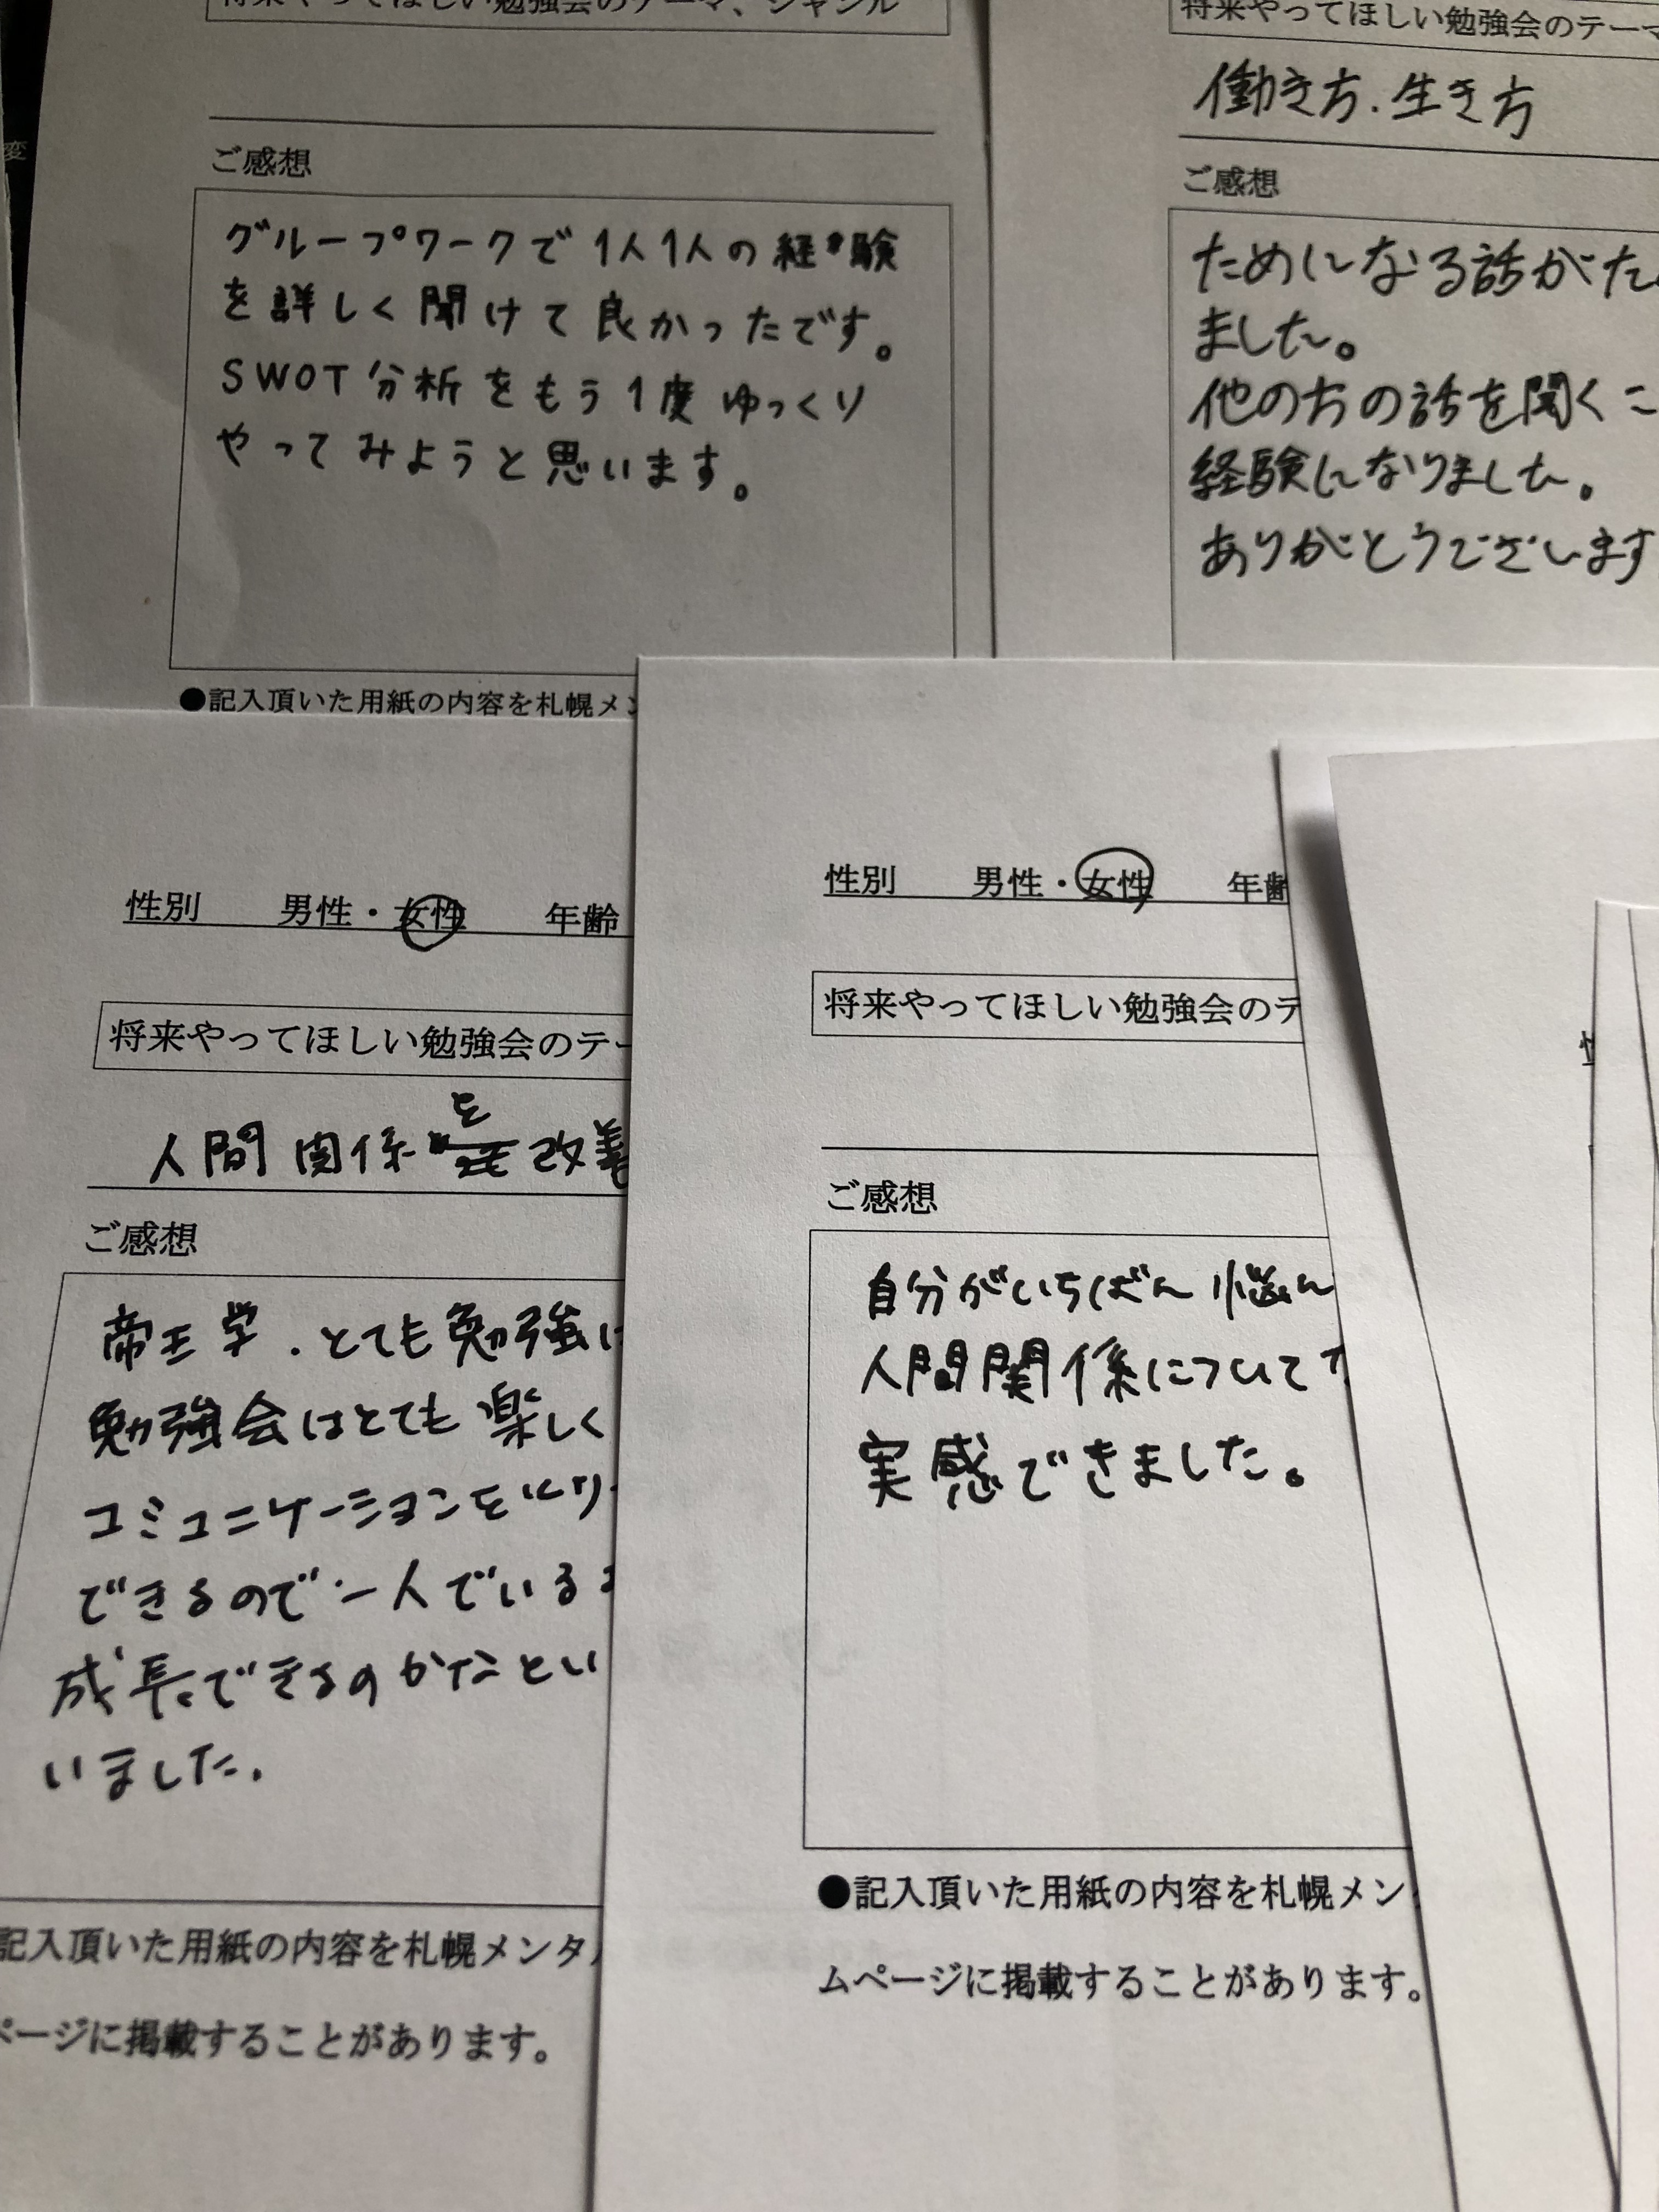 将来やってほしい勉強会のテーマ、ジャンル
ご感想
グループワークで1人1人の経験
を詳しく聞けて良かったです。
SWOT分析をもう1度ゆっくり
やってみようと思います。
●記入頂いた用紙の内容を札幌メン
将来やってほしい勉強会のテーマ
働き方.生き方
ご感想
ためになる話がた
ました。
他の方の話を聞くこ
経験になりました。
ありがとうございます
性別 男性・女性 年齢
将来やってほしい勉強会のテー
人間関係を改善
ご感想
帝王学.とても勉強に
勉強会はとても楽しく
コミュニケーションを
できるので一人でいる
成長できるのかなとい
いました.
記入頂いた用紙の内容を札幌メンタル
ページに掲載することがあります。
性別 男性・女性 年齢
将来やってほしい勉強会のテ
ご感想
自分がいちばん悩ん
人間関係について
実感できました。
●記入頂いた用紙の内容を札幌メン
ムページに掲載することがあります。